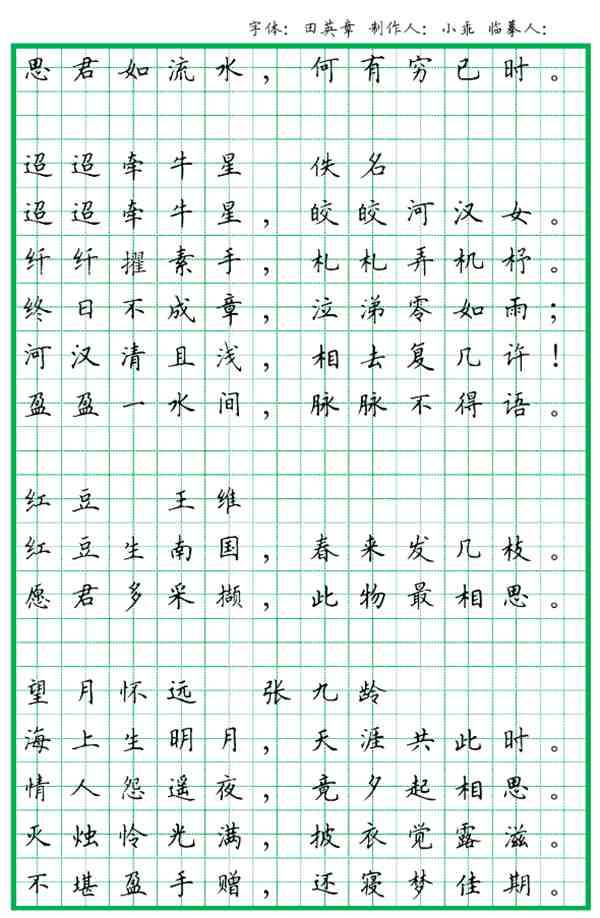 字体：田英章 制作人：小乖 临摹人：
思君如流水，何有穷已时。
迢迢牵牛星 佚名
迢迢牵牛星，皎皎河汉女。
纤纤擢素手，札札弄机杼。
终日不成章，泣涕零如雨；
河汉清且浅，相去复几许！
盈盈一水间，脉脉不得语。
红豆 王维
红豆生南国，春来发几枝。
愿君多采撷，此物最相思。
望月怀远 张九龄
海上生明月，天涯共此时。
情人怨遥夜，竟夕起相思。
灭烛怜光满，披衣觉露滋。
不堪盈手赠，还寝梦佳期。